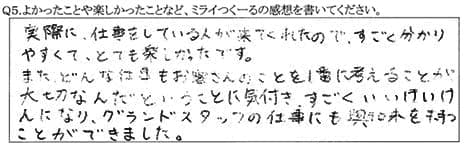 Q5.よかったことや楽しかったことなど、ミライつくーるの感想を書いてください。
実際に、仕事をしている人が来てくれたので、すごく分かり
やすくて、とても楽しかったです。
また、どんな仕事もお客さんのことを1番に考えることが
大切なんだということに気付き すごく いい けいけ
んになり、グランドスタッフの仕事にも 興味を持つ
ことができました。